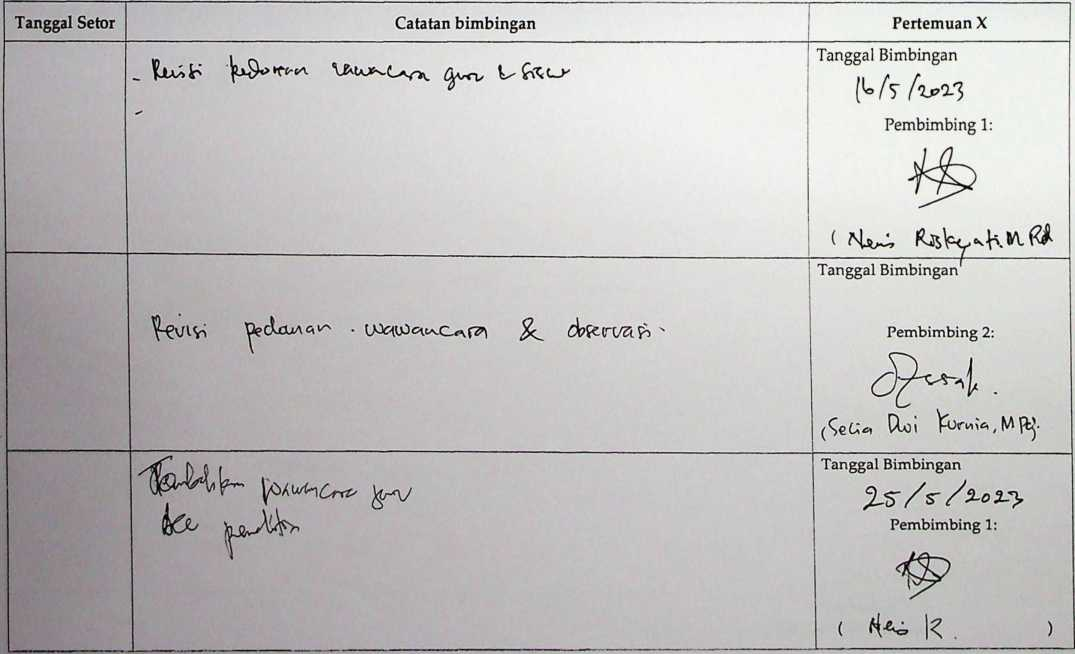 Tanggal Setor
Catatan bimbingan
Pertemuan X
- Revisi pedoman wawancara guru & siswa
-
Tanggal Bimbingan
16/5/2023
Pembimbing 1:
( Neris M Pd
Revisi pedoman . wawancara & observasi.
Tanggal Bimbingan
Pembimbing 2:
(Selia Dwi Kurnia, M Pd).
Tambahkan wawancara guru
Acc penelitian
Tanggal Bimbingan
25/5/2023
Pembimbing 1:
( R. )